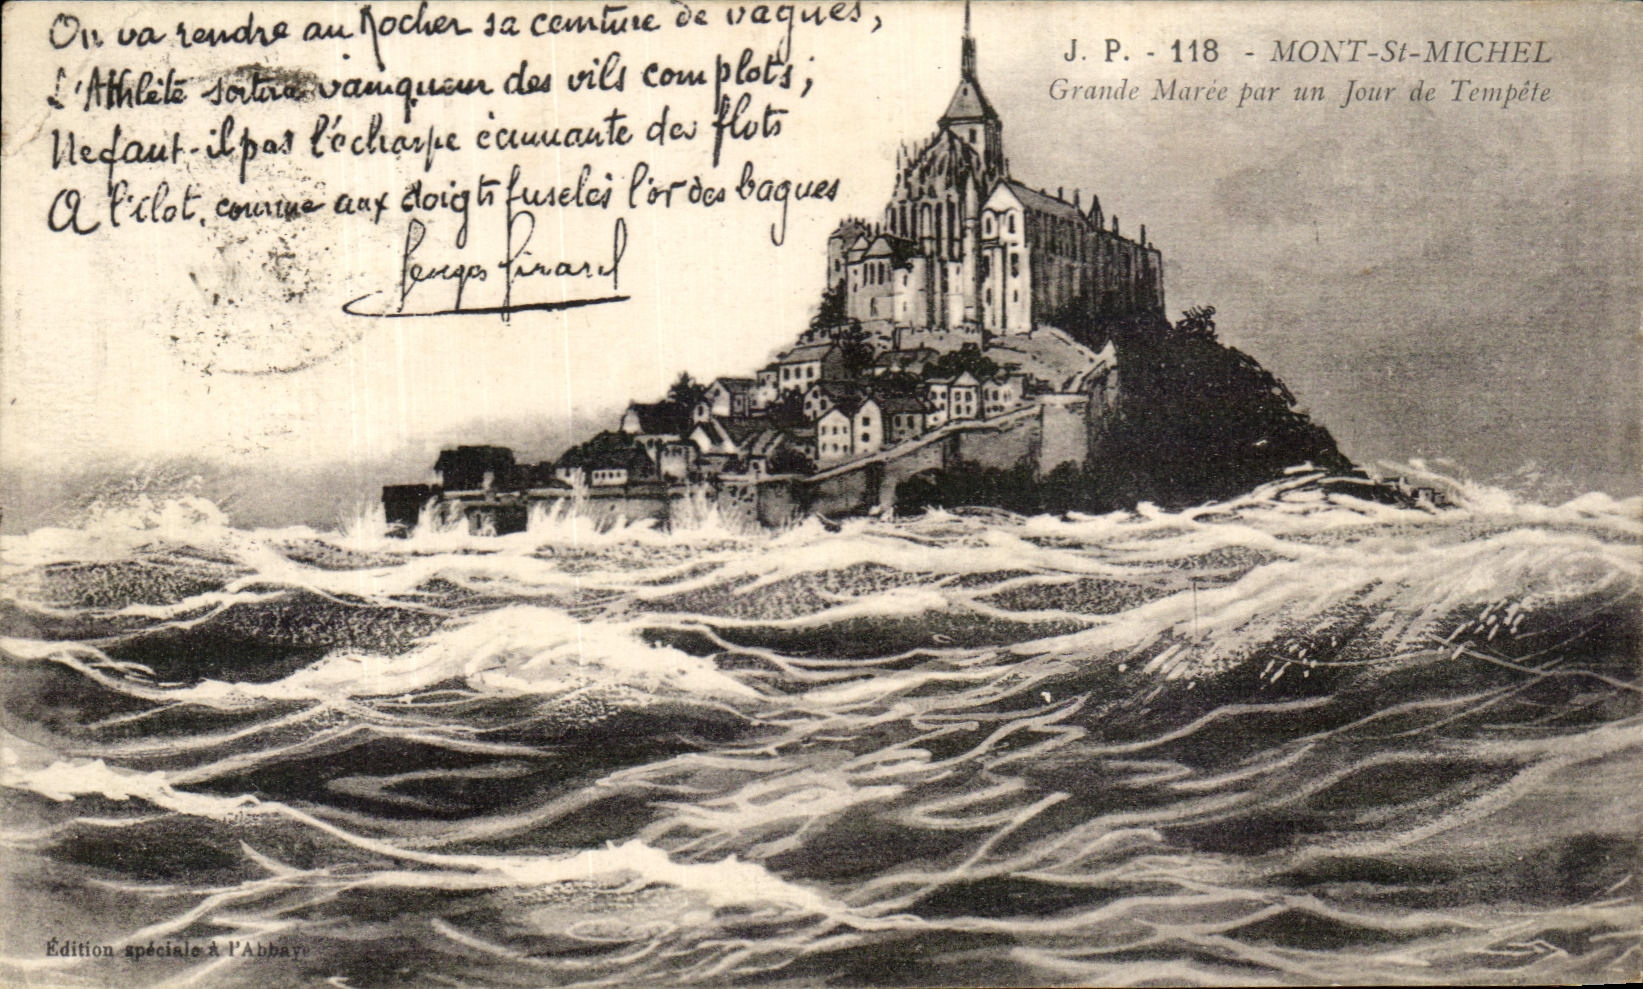 On va rendre au Rocher sa ceinture de vagues,
L'Athlète sortira vainqueur des vils complots;
Ne faut-il pas l'écharpe écumante des flots
A l'ilot, comme aux doigts fuselés l'or des bagues
Georges Girard
J. P. - 118 - MONT-St-MICHEL
Grande Marée par un Jour de Tempête
Édition spéciale à l'Abbaye